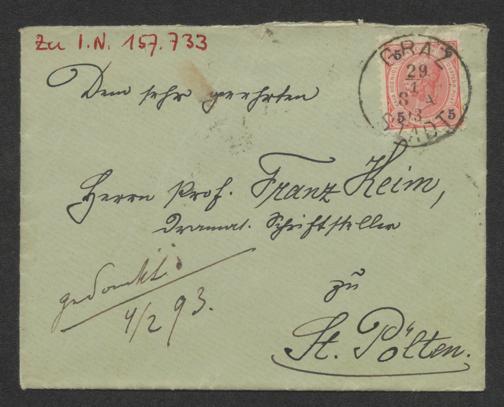 Zu I.N. 157.733
GRAZ
29
1
93
STADT
5 5
Dem sehr geehrten
Herrn Prof. Franz Keim,
dramat. Schriftsteller
zu
St. Pölten.
gedankt
4/2 93.